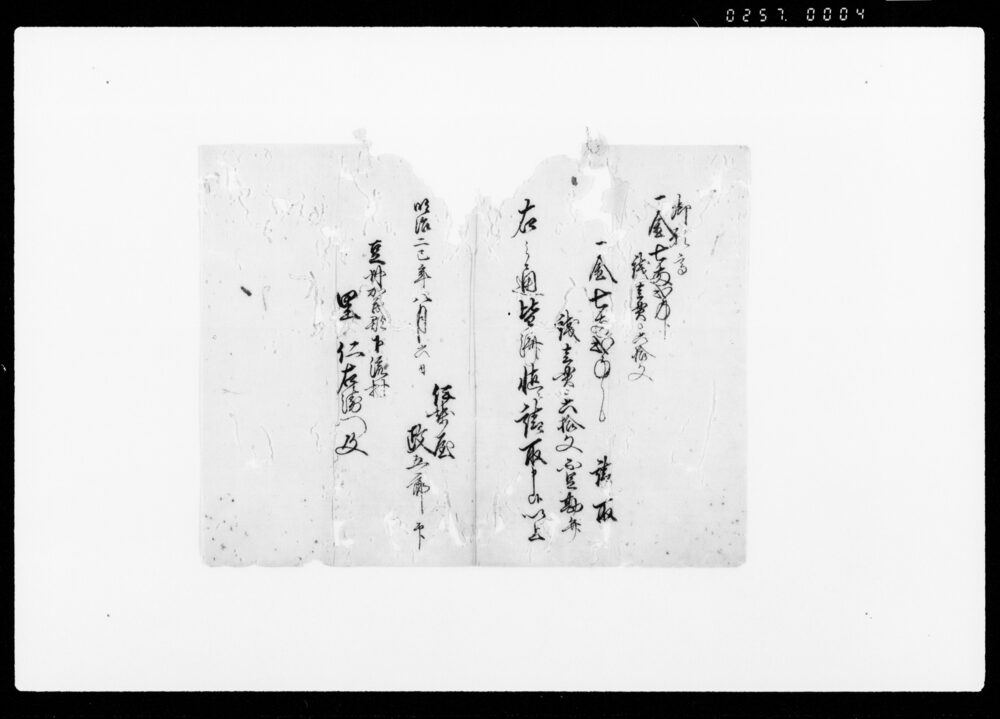 0257. 0004
一金七両弐分
銭壱貫六拾文
一金七両弐分 請取
銭壱貫六拾文 勘弁
右之通皆済慥ニ請取申候以上
明治二巳年八月十六日
屋
政五郎
豆州加茂郡下流村
里 仁右衛門殿